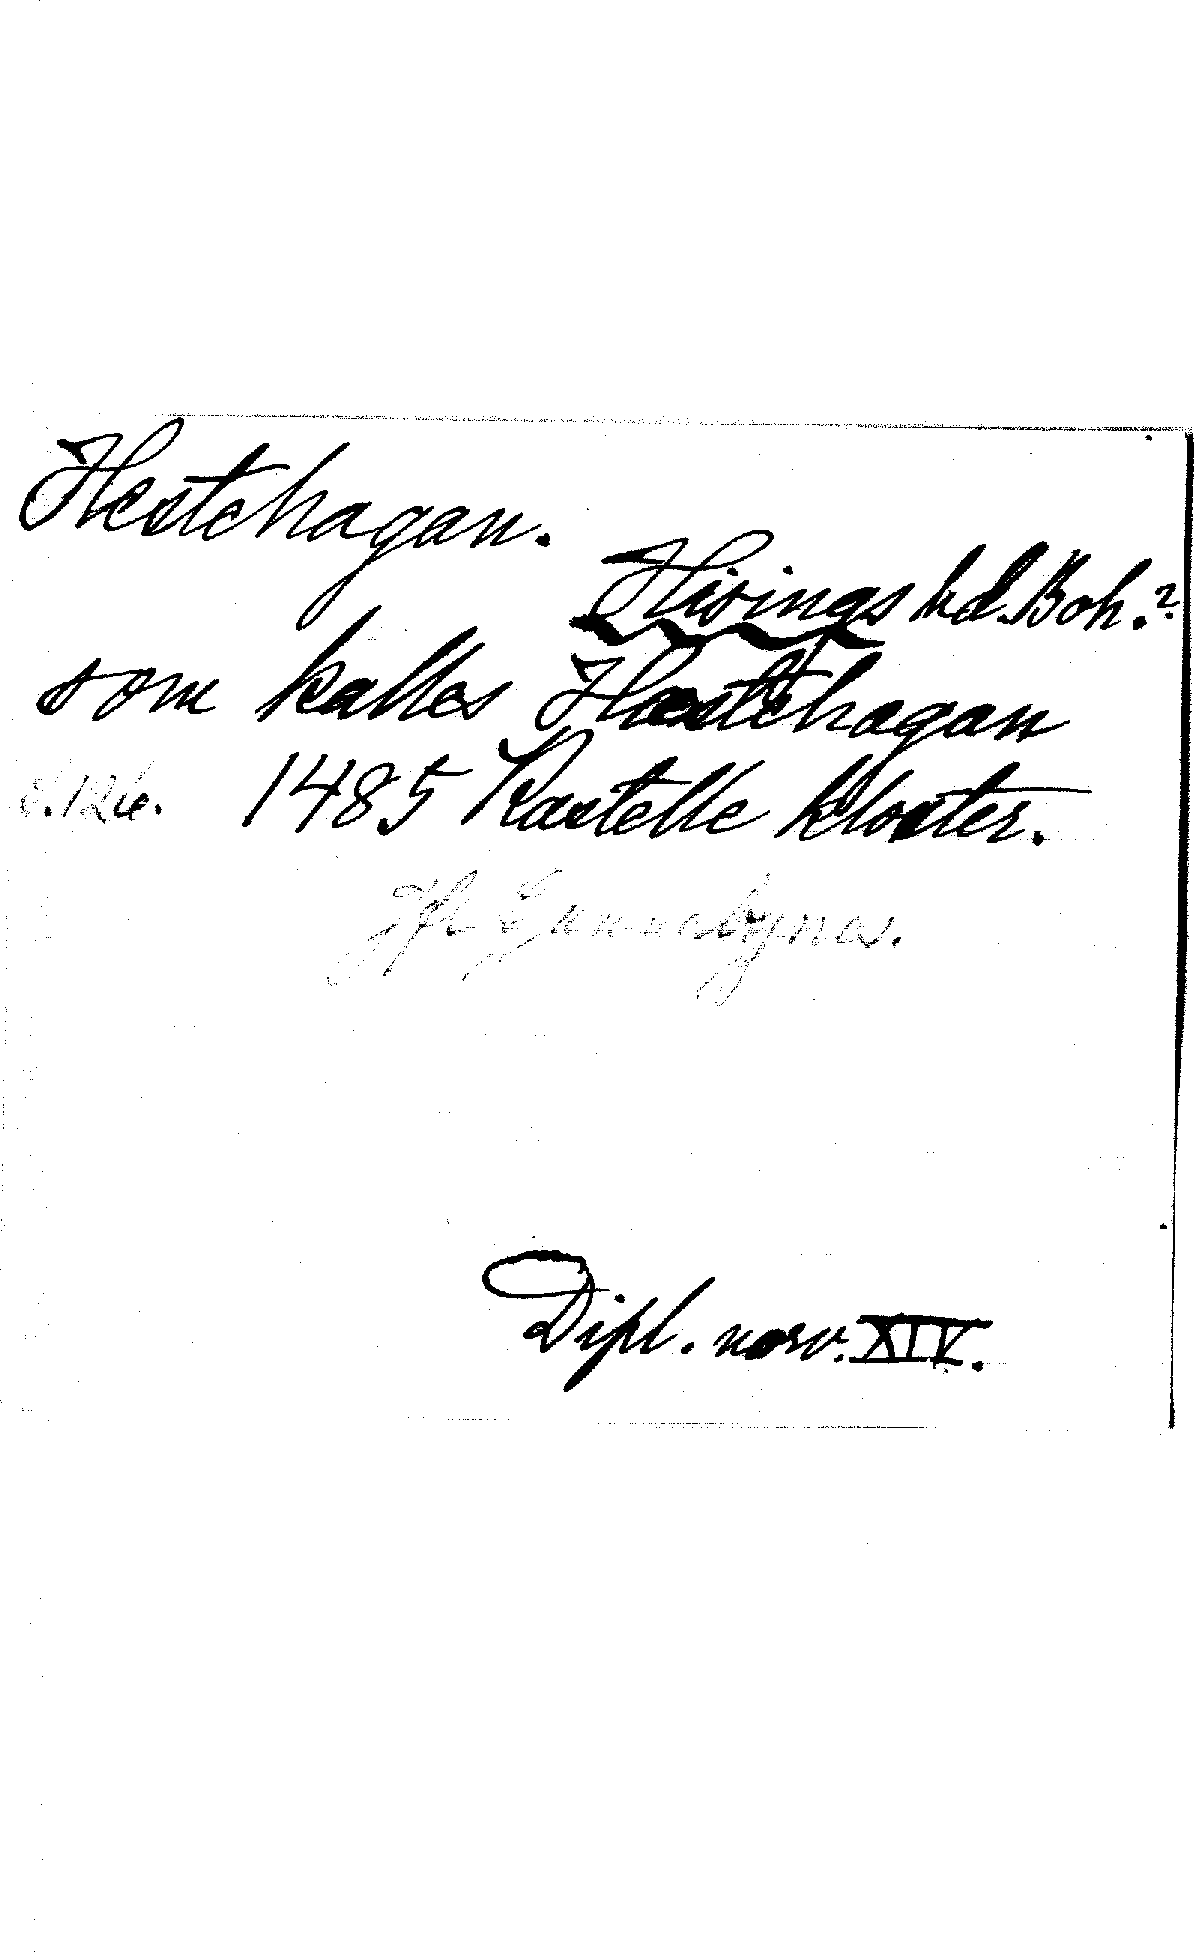 Hestehagan.
Hisings hd. Boh.?
som kalles Hæstehagan
s. 126. 1485 Kastelle kloster.
Jfr Gunnabyna.
Dipl. norv. XIV.